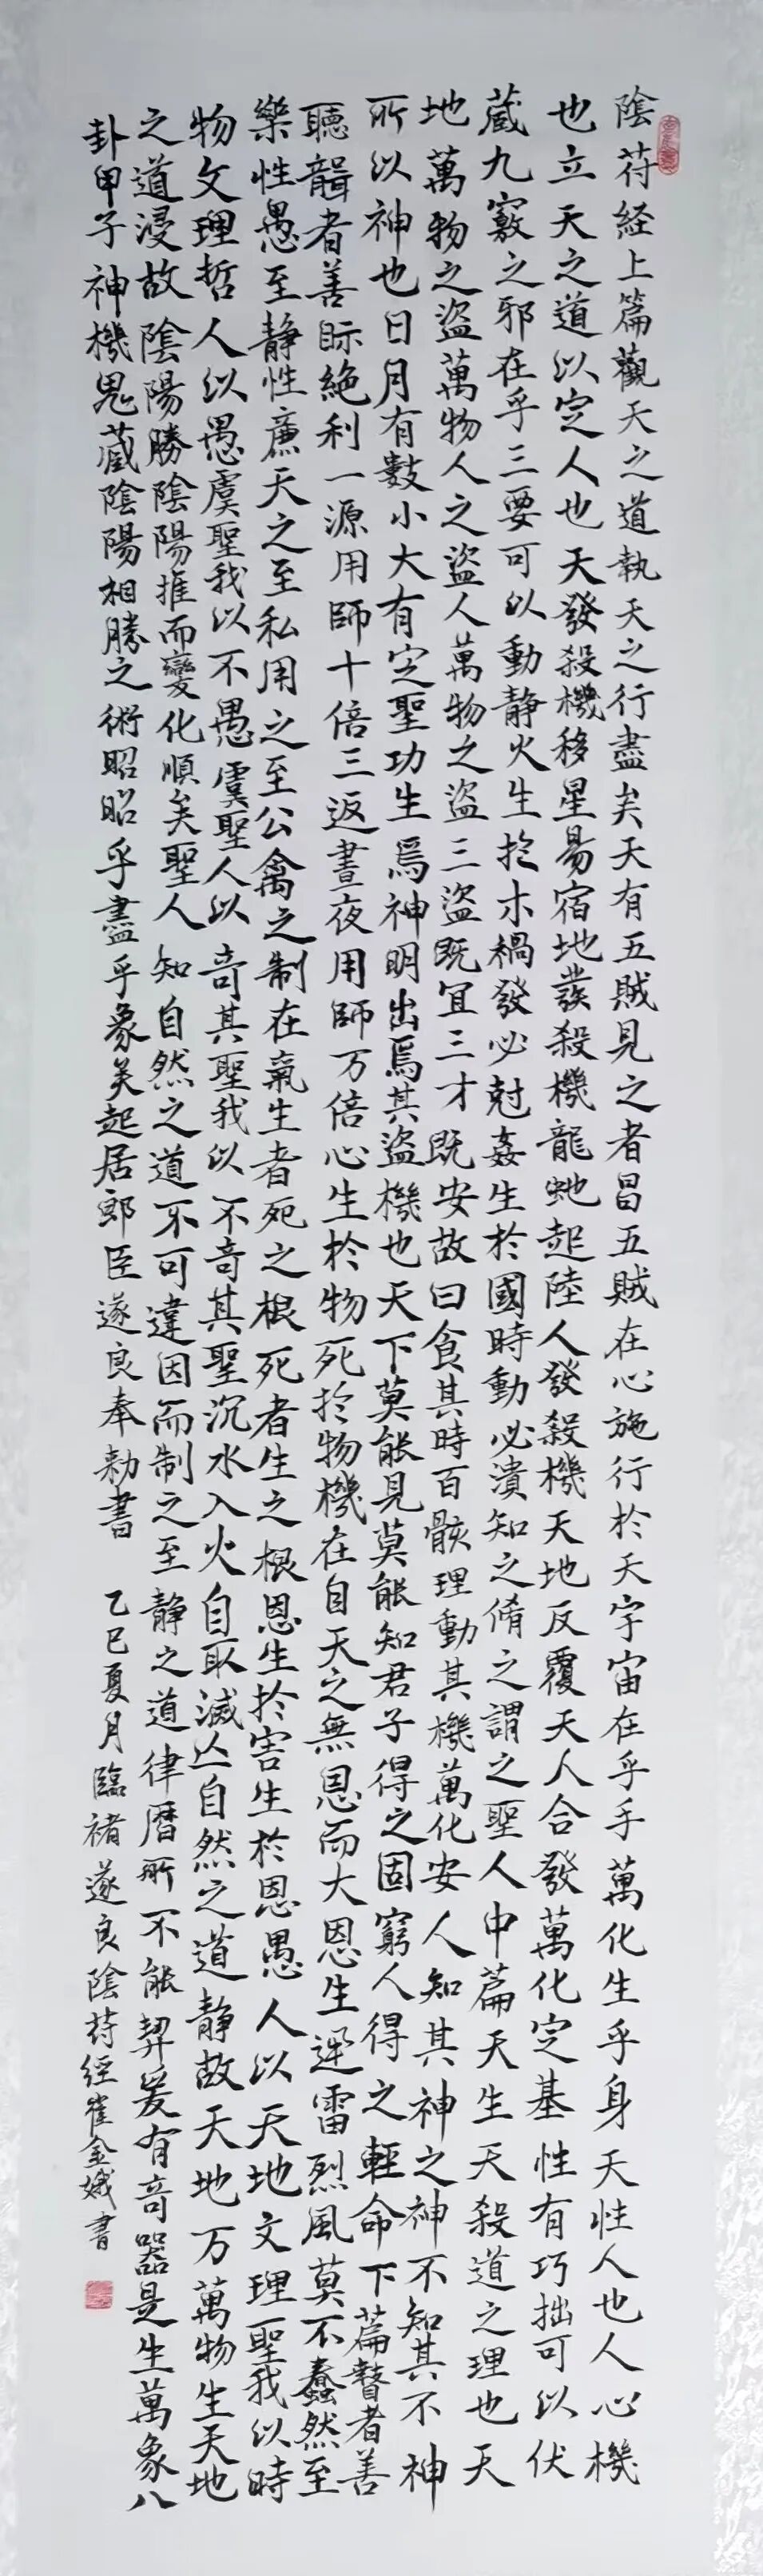 陰符経上篇觀天之道執天之行盡矣天有五賊見之者昌五賊在心施行於天宇宙在乎手萬化生乎身天性人也人心機
也立天之道以定人也天發殺機移星易宿地發殺機龍虵起陸人發殺機天地反覆天人合發萬化定基性有巧拙可以伏
蔵九竅之邪在乎三要可以動静火生於木禍發必尅姦生於國時動必潰知之脩之謂之聖人中篇天生天殺道之理也天
地萬物之盗萬物人之盗人萬物之盗三盗既冝三才既安故曰食其時百骸理動其機萬化安人知其神之神不知其不神
所以神也日月有數小大有定聖功生焉神明出焉其盗機也天下莫能見莫能知君子得之固窮人得之輕命下篇瞽者善
聽聾者善眎絶利一源用師十倍三返晝夜用師万倍心生於物死於物機在自天之無恩而大恩生迅雷烈風莫不蠢然至
樂性愚至静性廉天之至私用之至公禽之制在氣生者死之根死者生之根恩生於害生於恩愚人以天地文理聖我以時
物文理哲人以愚虞聖我以不愚虞聖人以奇其聖我以不奇其聖沉水入火自取滅亾自然之道静故天地万萬物生天地
之道浸故陰陽勝陰陽推而變化順矣聖人知自然之道不可違因而制之至静之道律曆所不能契爰有奇器是生萬象八
卦甲子神機鬼蔵陰陽相勝之術昭昭乎盡乎象矣起居郎臣遂良奉勅書
乙巳夏月臨褚遂良陰符經崔金娥書